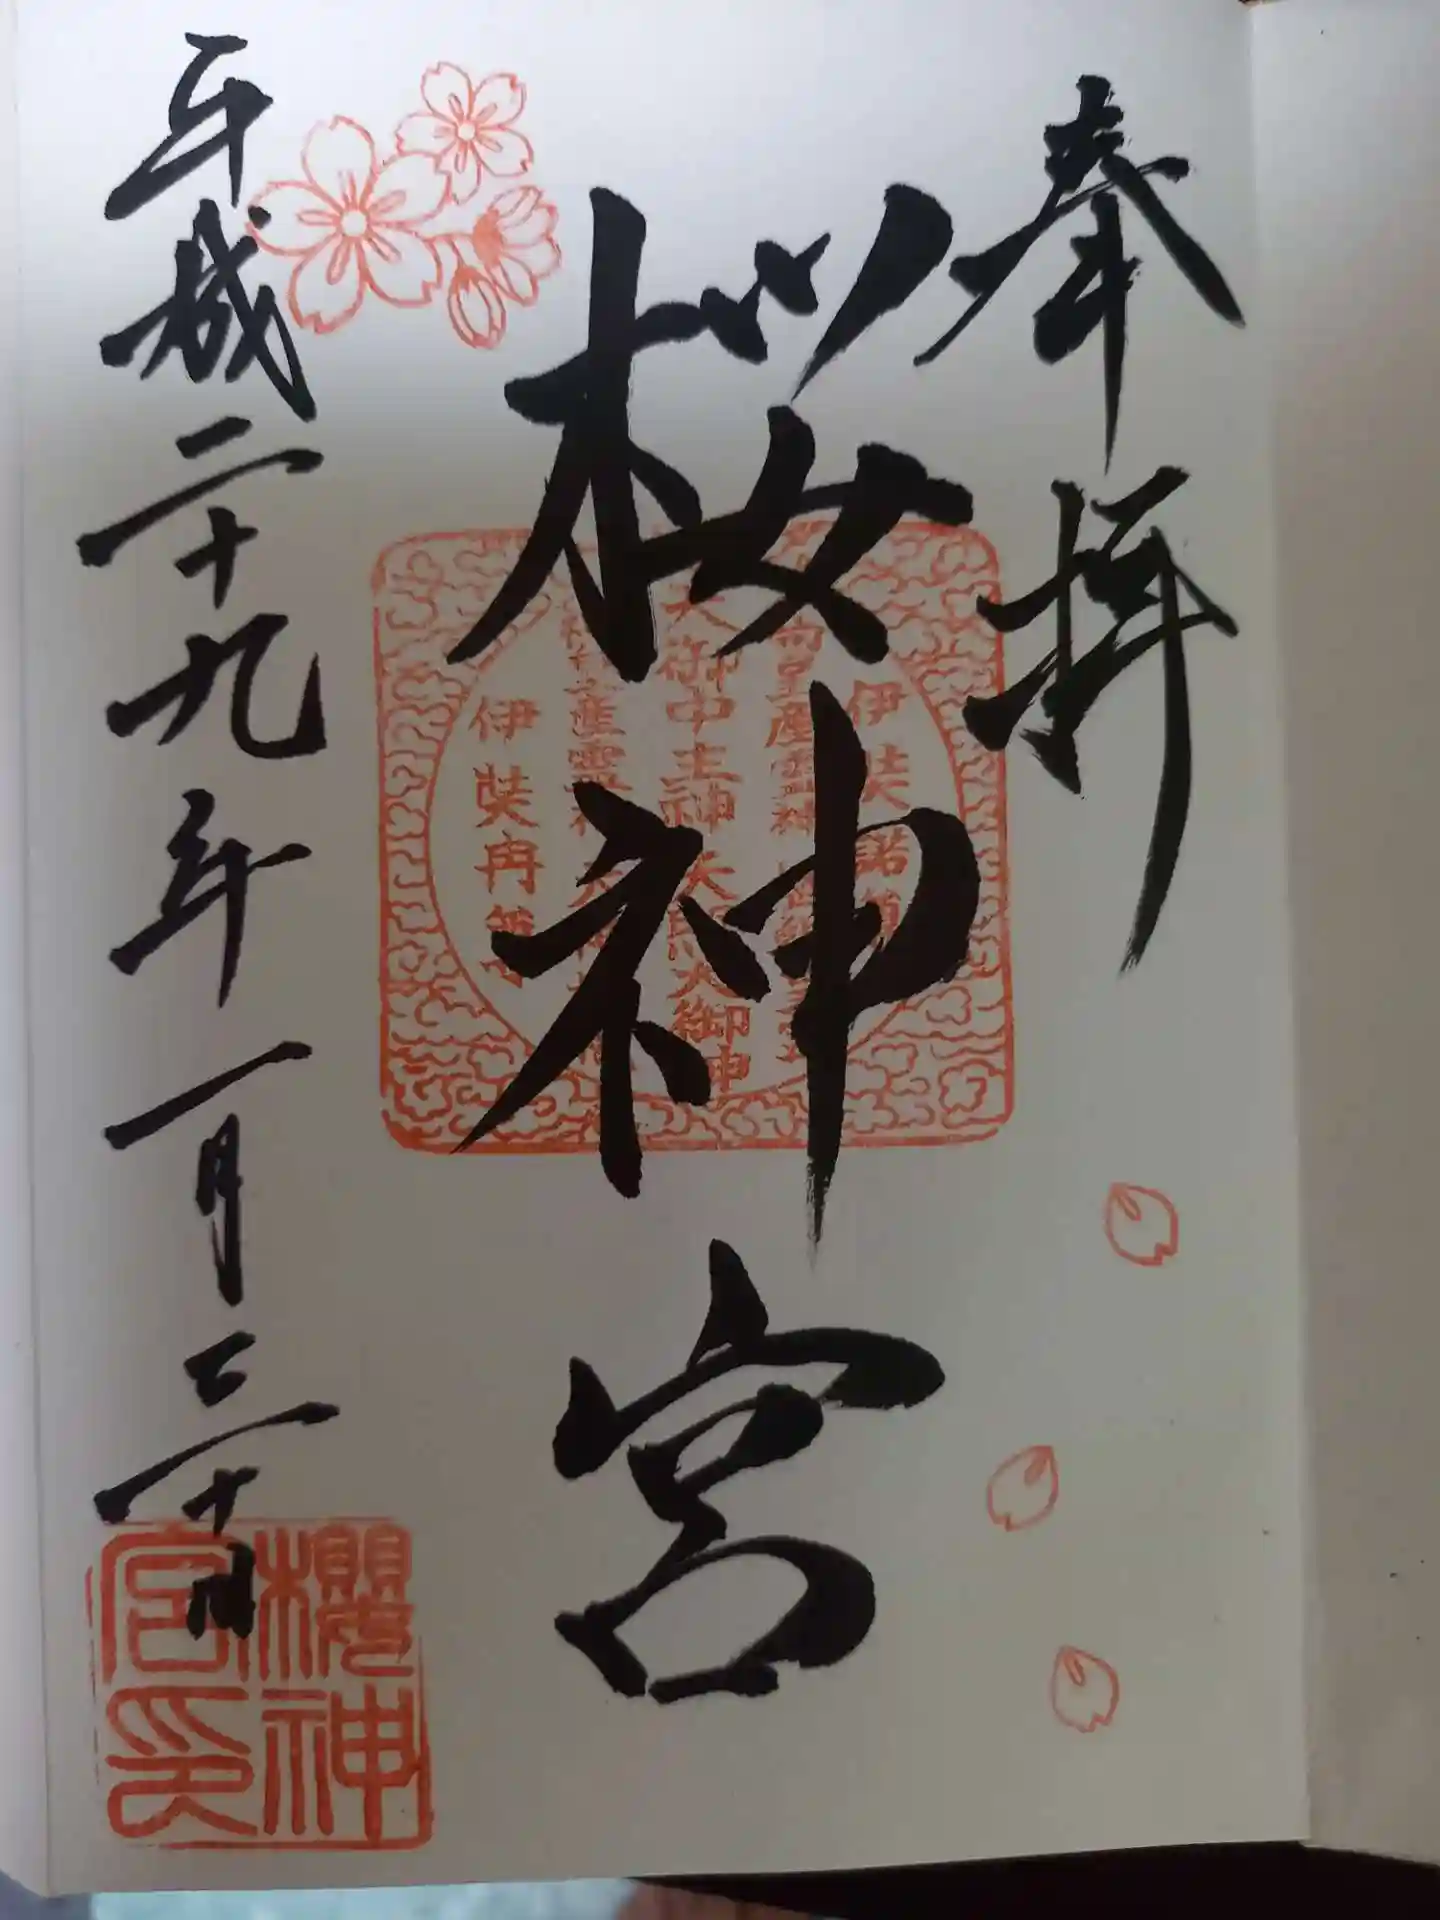 奉拝
桜神宮
平成二十九年一月三十日
伊弉諾
天御中主神 天照大御神
伊弉冉
櫻神
宮印